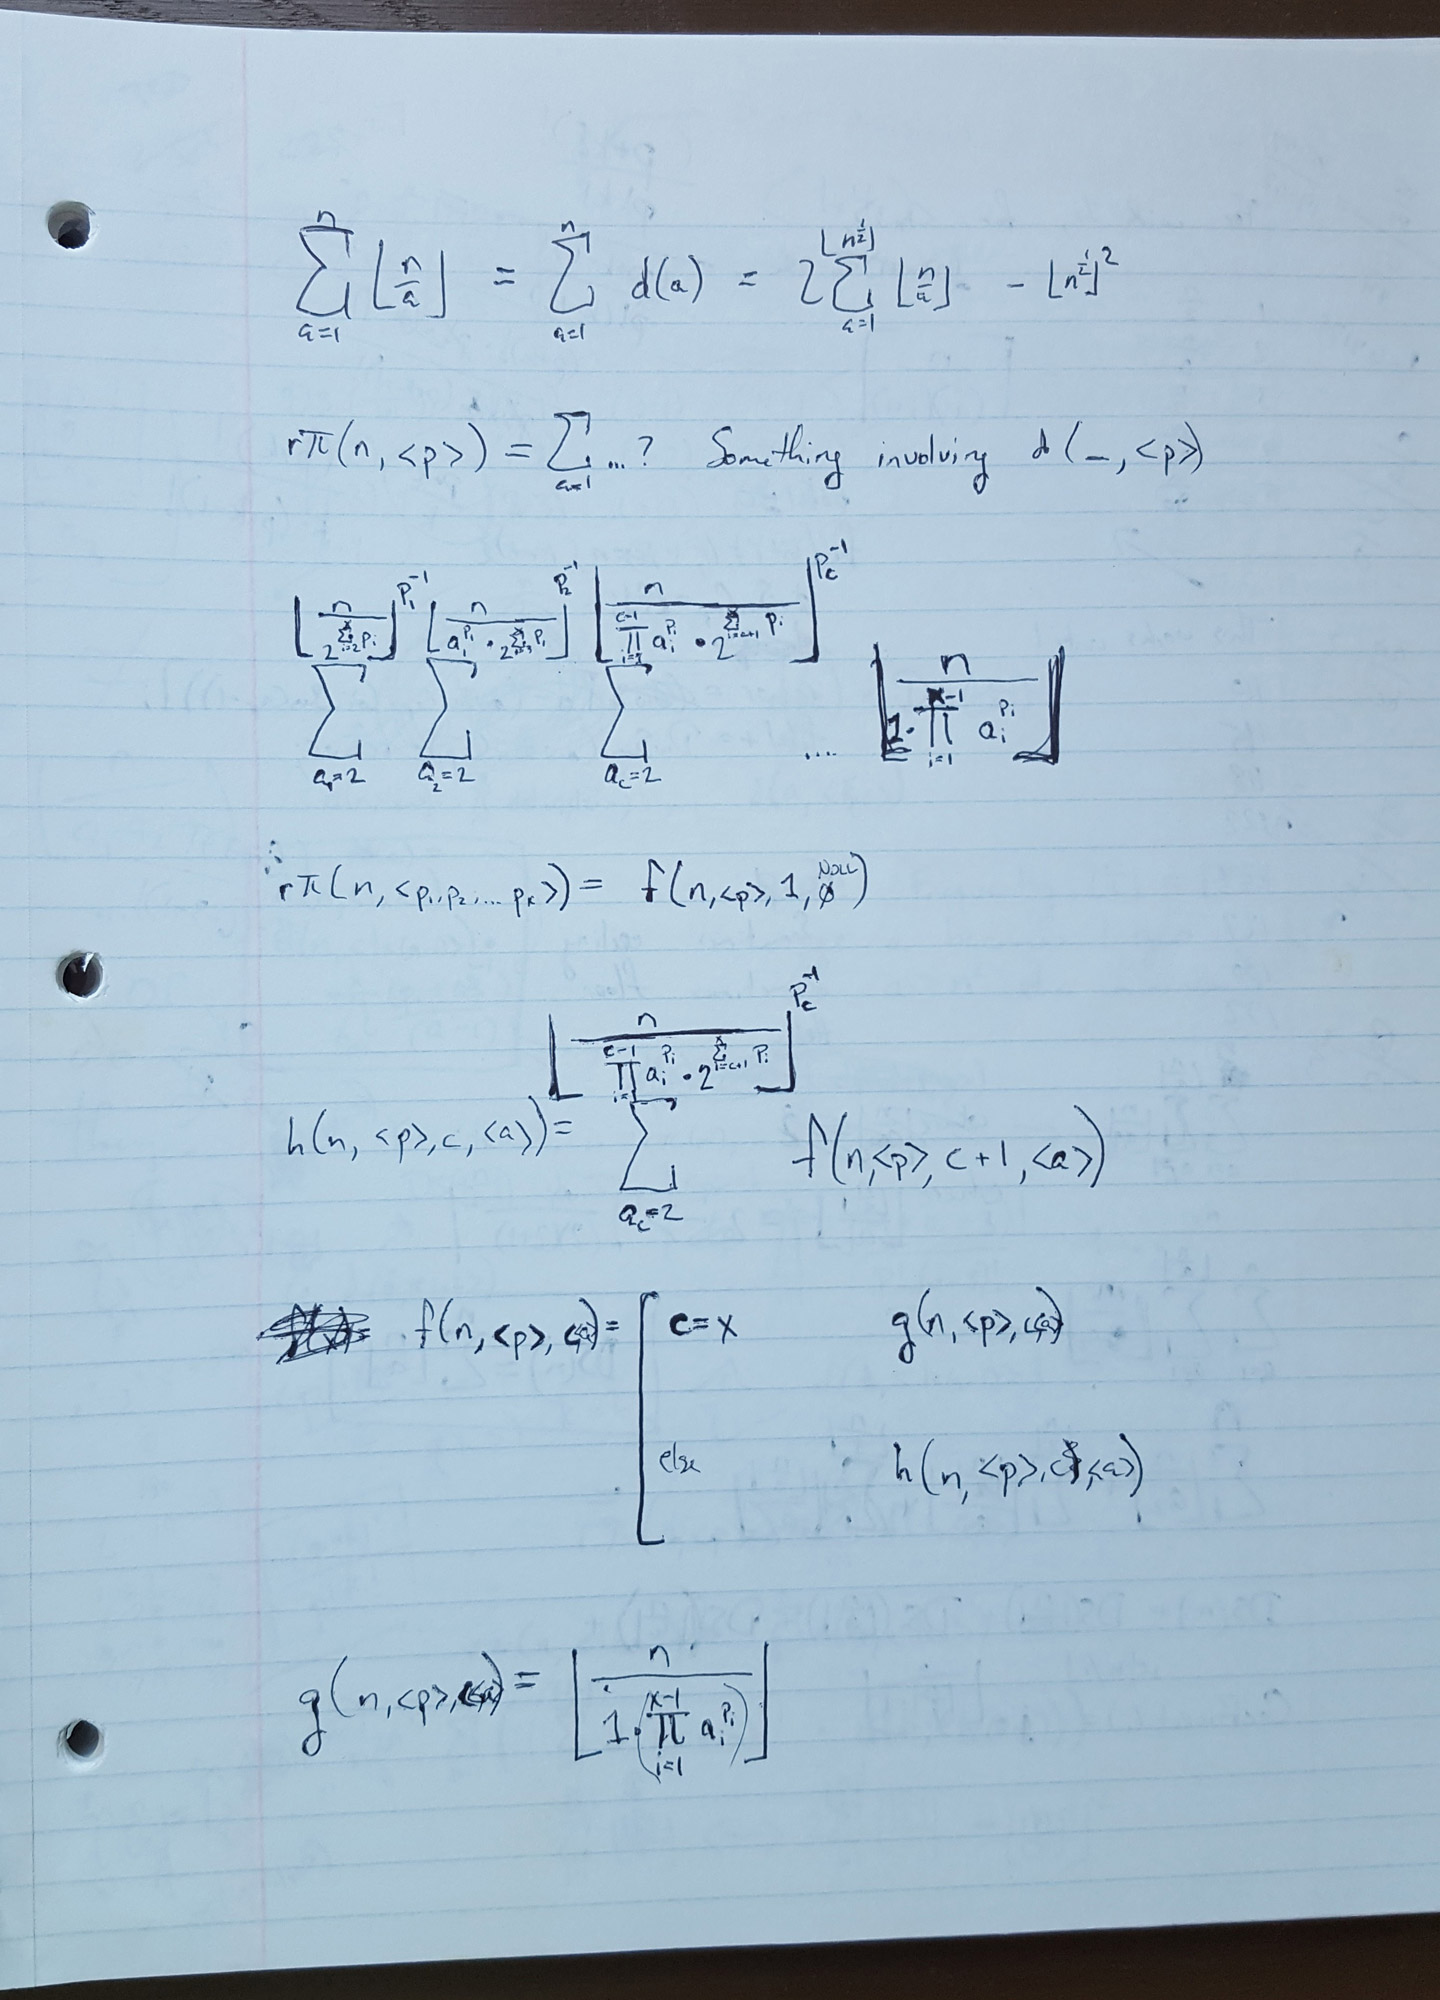 \sum_{a=1}^{n} \lfloor \frac{n}{a} \rfloor = \sum_{a=1}^{n} d(a) = 2\sum_{a=1}^{\lfloor n^{\frac{1}{2}} \rfloor} \lfloor \frac{n}{a} \rfloor - \lfloor n^{\frac{1}{2}} \rfloor^2
rπ(n, <p>) = \sum_{a=1} ...? Something involving d(_, <p>)
\sum_{a_1=2}^{\lfloor \frac{n}{2^{\sum_{i=2}^{x} p_i}} \rfloor^{p_1^{-1}}} \sum_{a_2=2}^{\lfloor \frac{n}{a_1^{p_1} \cdot 2^{\sum_{i=3}^{x} p_i}} \rfloor^{p_2^{-1}}} \sum_{a_c=2}^{\lfloor \frac{n}{\prod_{i=1}^{c-1} a_i^{p_i} \cdot 2^{\sum_{i=c+1}^{x} p_i}} \rfloor^{p_c^{-1}}} .... \lfloor \frac{n}{1 \cdot \prod_{i=1}^{x-1} a_i^{p_i}} \rfloor
rπ(n, <p_1, p_2, ... p_x>) = f(n, <p>, 1, ∅) NULL
h(n, <p>, c, <a>) = \sum_{a_c=2}^{\lfloor \frac{n}{\prod_{i=1}^{c-1} a_i^{p_i} \cdot 2^{\sum_{i=c+1}^{x} p_i}} \rfloor^{p_c^{-1}}} f(n, <p>, c+1, <a>)
f(n, <p>, c, <a>) = [ c = x g(n, <p>, c, <a>)
else h(n, <p>, c, <a>)
g(n, <p>, c, <a>) = \lfloor \frac{n}{1 \cdot (\prod_{i=1}^{x-1} a_i^{p_i})} \rfloor